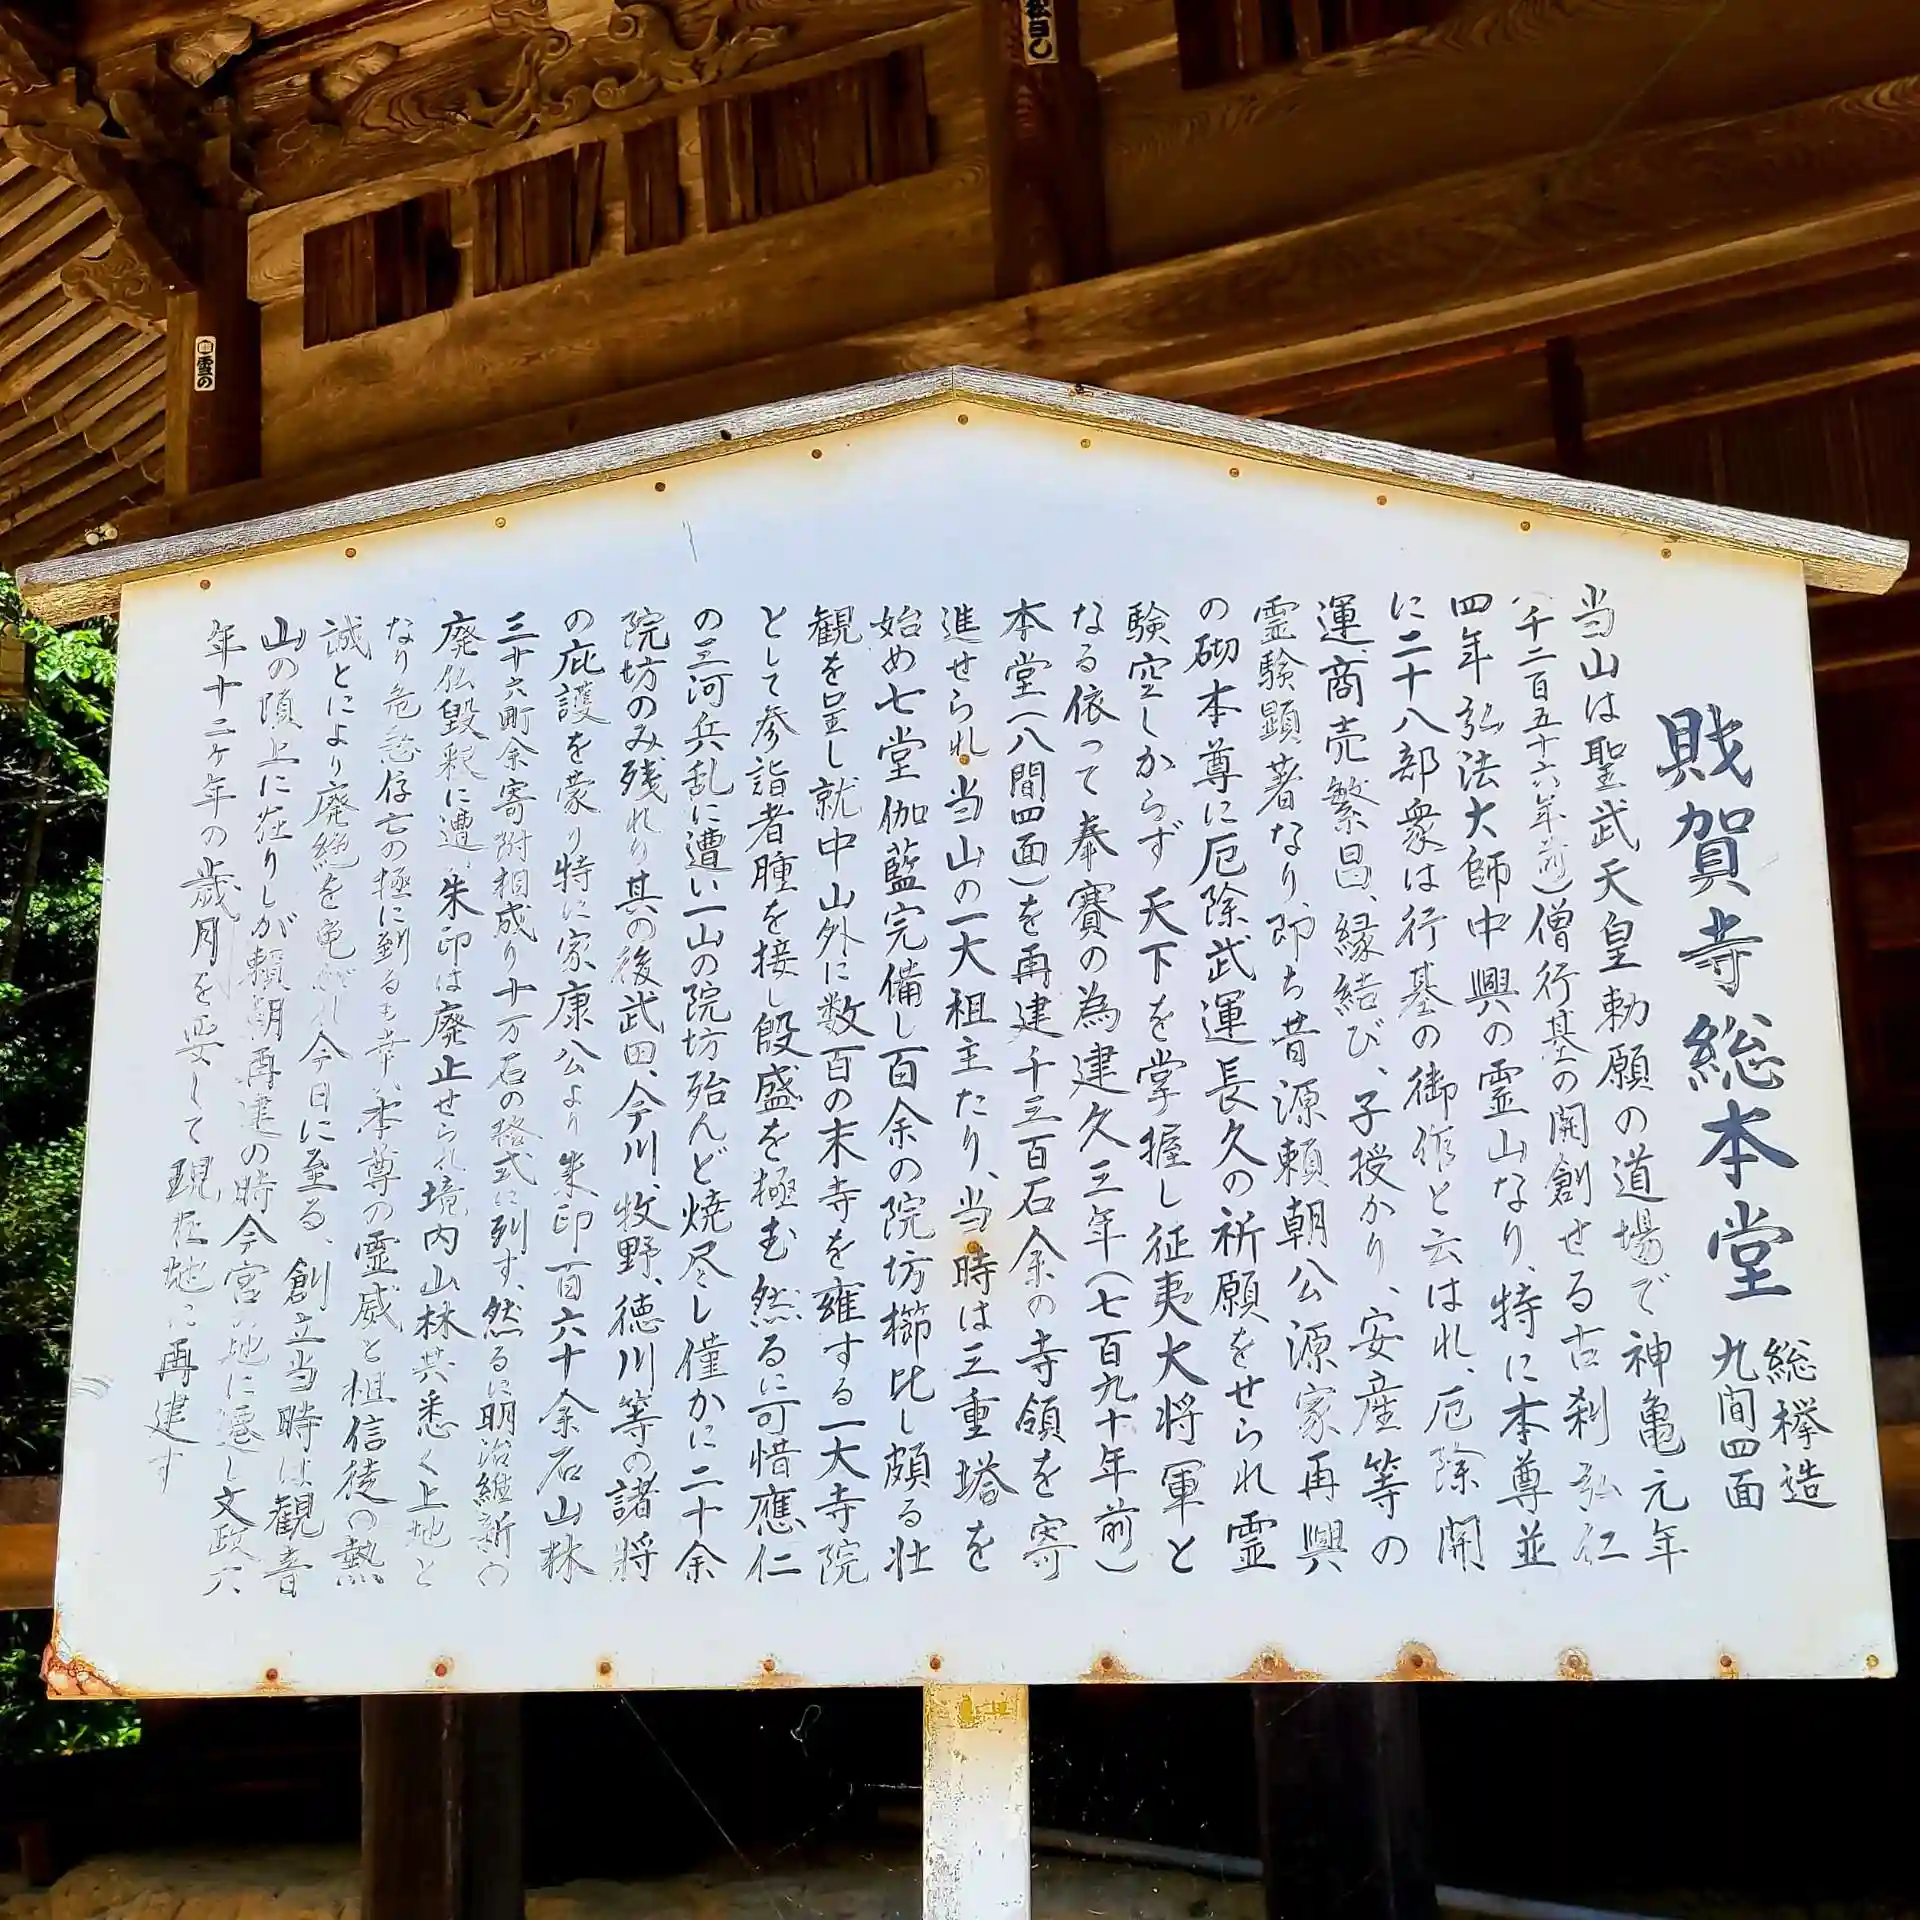 財賀寺総本堂
総欅造
九間四面
当山は聖武天皇勅願の道場で神亀元年
(千二百五十六年前)僧行基の開創せる古刹弘仁
四年弘法大師中興の霊山なり、特に本尊並
に二十八部衆は行基の御作と云はれ、厄除開
運、商売繁昌、縁結び、子授かり、安産等の
霊験顕著なり、即ち昔源頼朝公源家再興
の砌本尊に厄除武運長久の祈願をせられ霊
験空しからず天下を掌握し征夷大将軍と
なる依って奉賽の為建久三年(七百九十年前)
本堂(八間四面)を再建千三百石余の寺領を寄
進せられ当山の一大租主たり、当時は三重塔を
始め七堂伽藍完備し百余の院坊櫛比し頗る壮
観を呈し就中山外に数百の末寺を雍する一大寺院
として参詣者腫を接し殷盛を極む然るに可惜應仁
の三河兵乱に遭い一山の院坊殆んど焼尽し僅かに二十余
院坊のみ残れり其の後武田、今川、牧野、徳川等の諸将
の庇護を蒙り特に家康公より朱印百六十余石山林
三十六町余寄附相成り十万石の格式に列す、然るに明治維新の
廃仏毀釈に遭、朱印は廃止せられ境内山林共悉く上地と
なり危急存亡の極に到るも幸い本尊の霊威と租信徒の熱
誠とにより廃絶を免がれ今日に至る、創立当時は観音
山の頂上に在りしが頼朝再建の時今宮の地に遷し文政六
年十二ヶ年の歳月を要して現在地に再建す
雪の